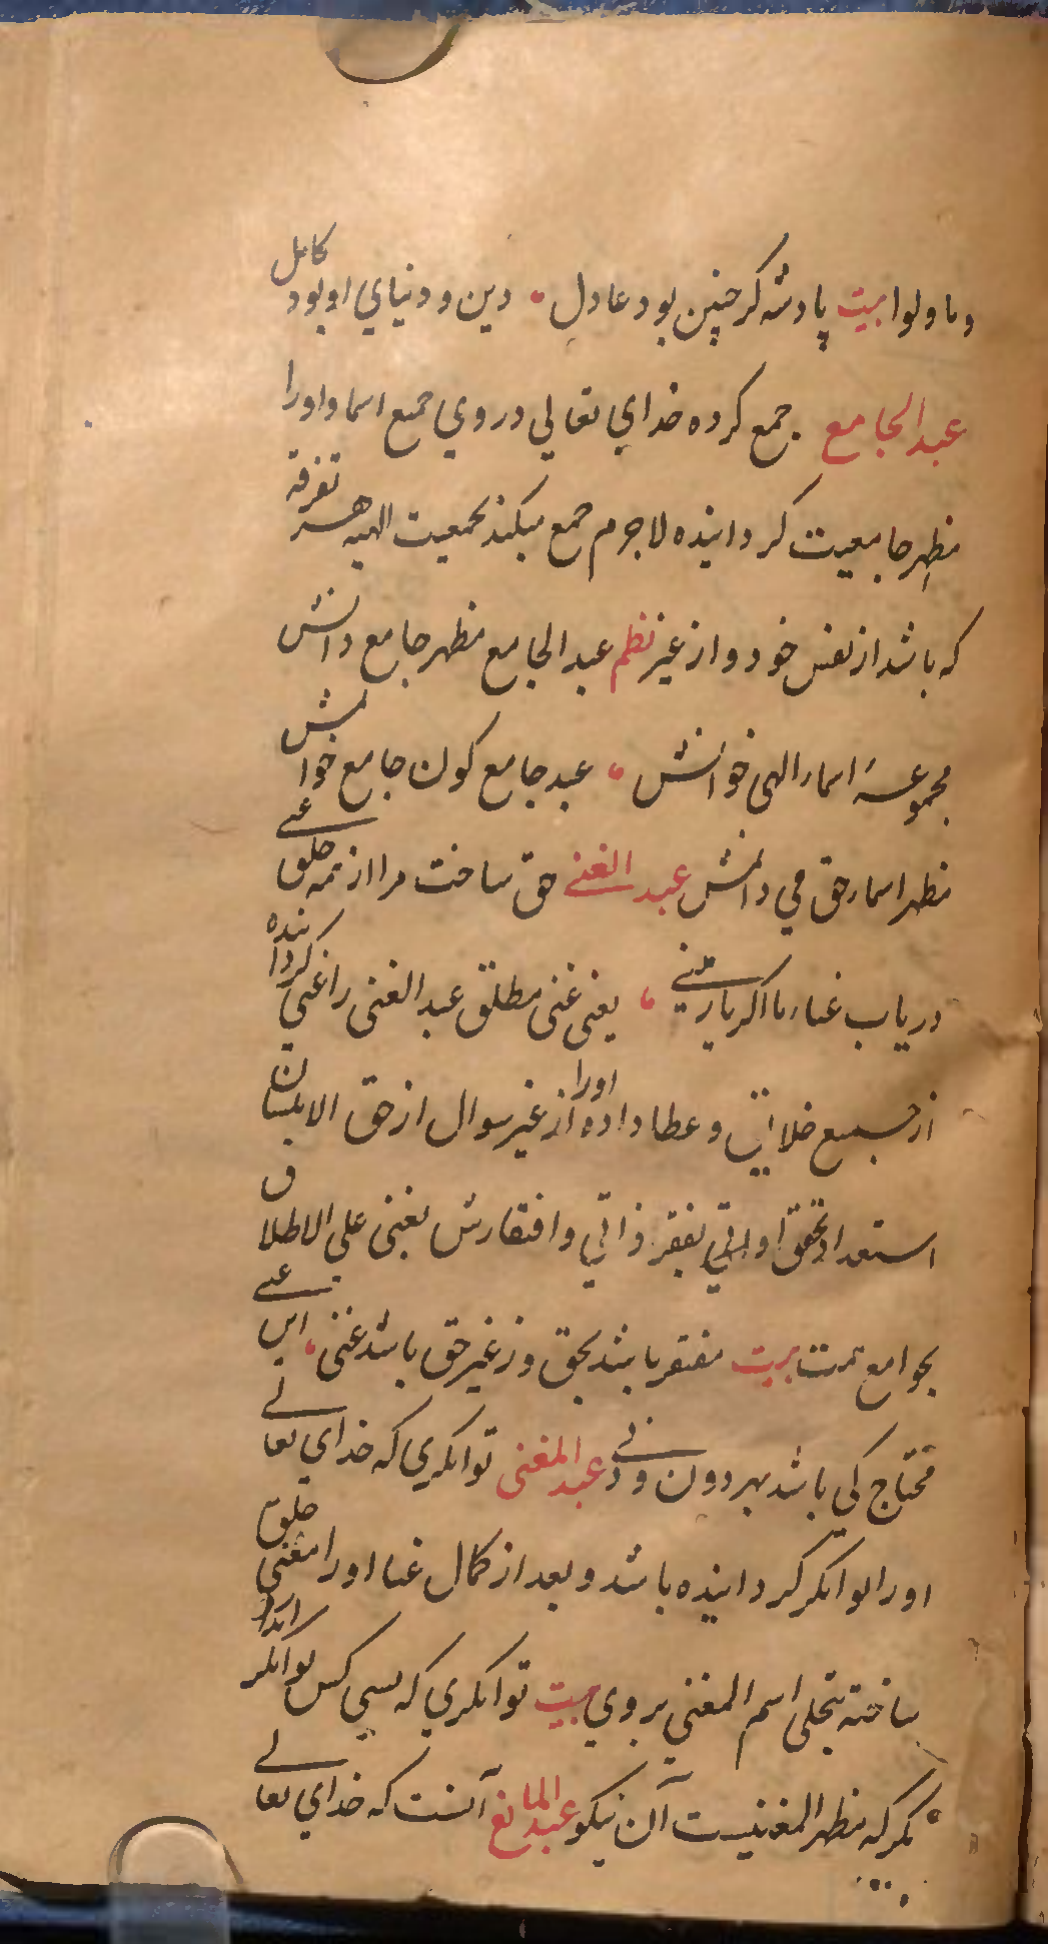 وما ولوا بیت پادشه کر چنین بود عادل دین و دنیای او بود کامل
عبد الجامع جمع کرده خدای تعالی در وی جمع اسما و اورا
مظهر جامعیت کردانیده لاجرم جمع میکند بجمعیت الهیه هر تفرقه
که باشد از نفس خود و از غیر نظم عبد الجامع مظهر جامع دانش
مجموعهٔ اسماء الهی خوانش عبد جامع کون جامع خوانش
مظهر اسماء حق می دانش عبد الغنی حق ساخت مرا از همه خلق غنی
دریاب غناء ما اکر یار منی یعنی غنی مطلق عبد الغنی را غنی کردانیده
از جمیع خلایق و عطا داده اورا از غیر سوال از حق الا بلسان
استعداد تحقق او یافتی بفقر ذاتی و افتقارش بغنی علی الاطلاق
بجوامع همت بیت مفتقر باشد بحق وز غیر حق باشد غنی این غنی
محتاج کی باشد بهر دون و دنی عبد المغنی توانکری که خدای تعالی
اورا توانکر کردانیده باشد و بعد از کمال غنا اورا مغنی خلق
ساخته بتجلی اسم المغنی بر وی بیت توانکری که بسی کس توانکر
مکر که مظهر المغنیست آن نیکو عبد المانع آنست که خدای تعالی